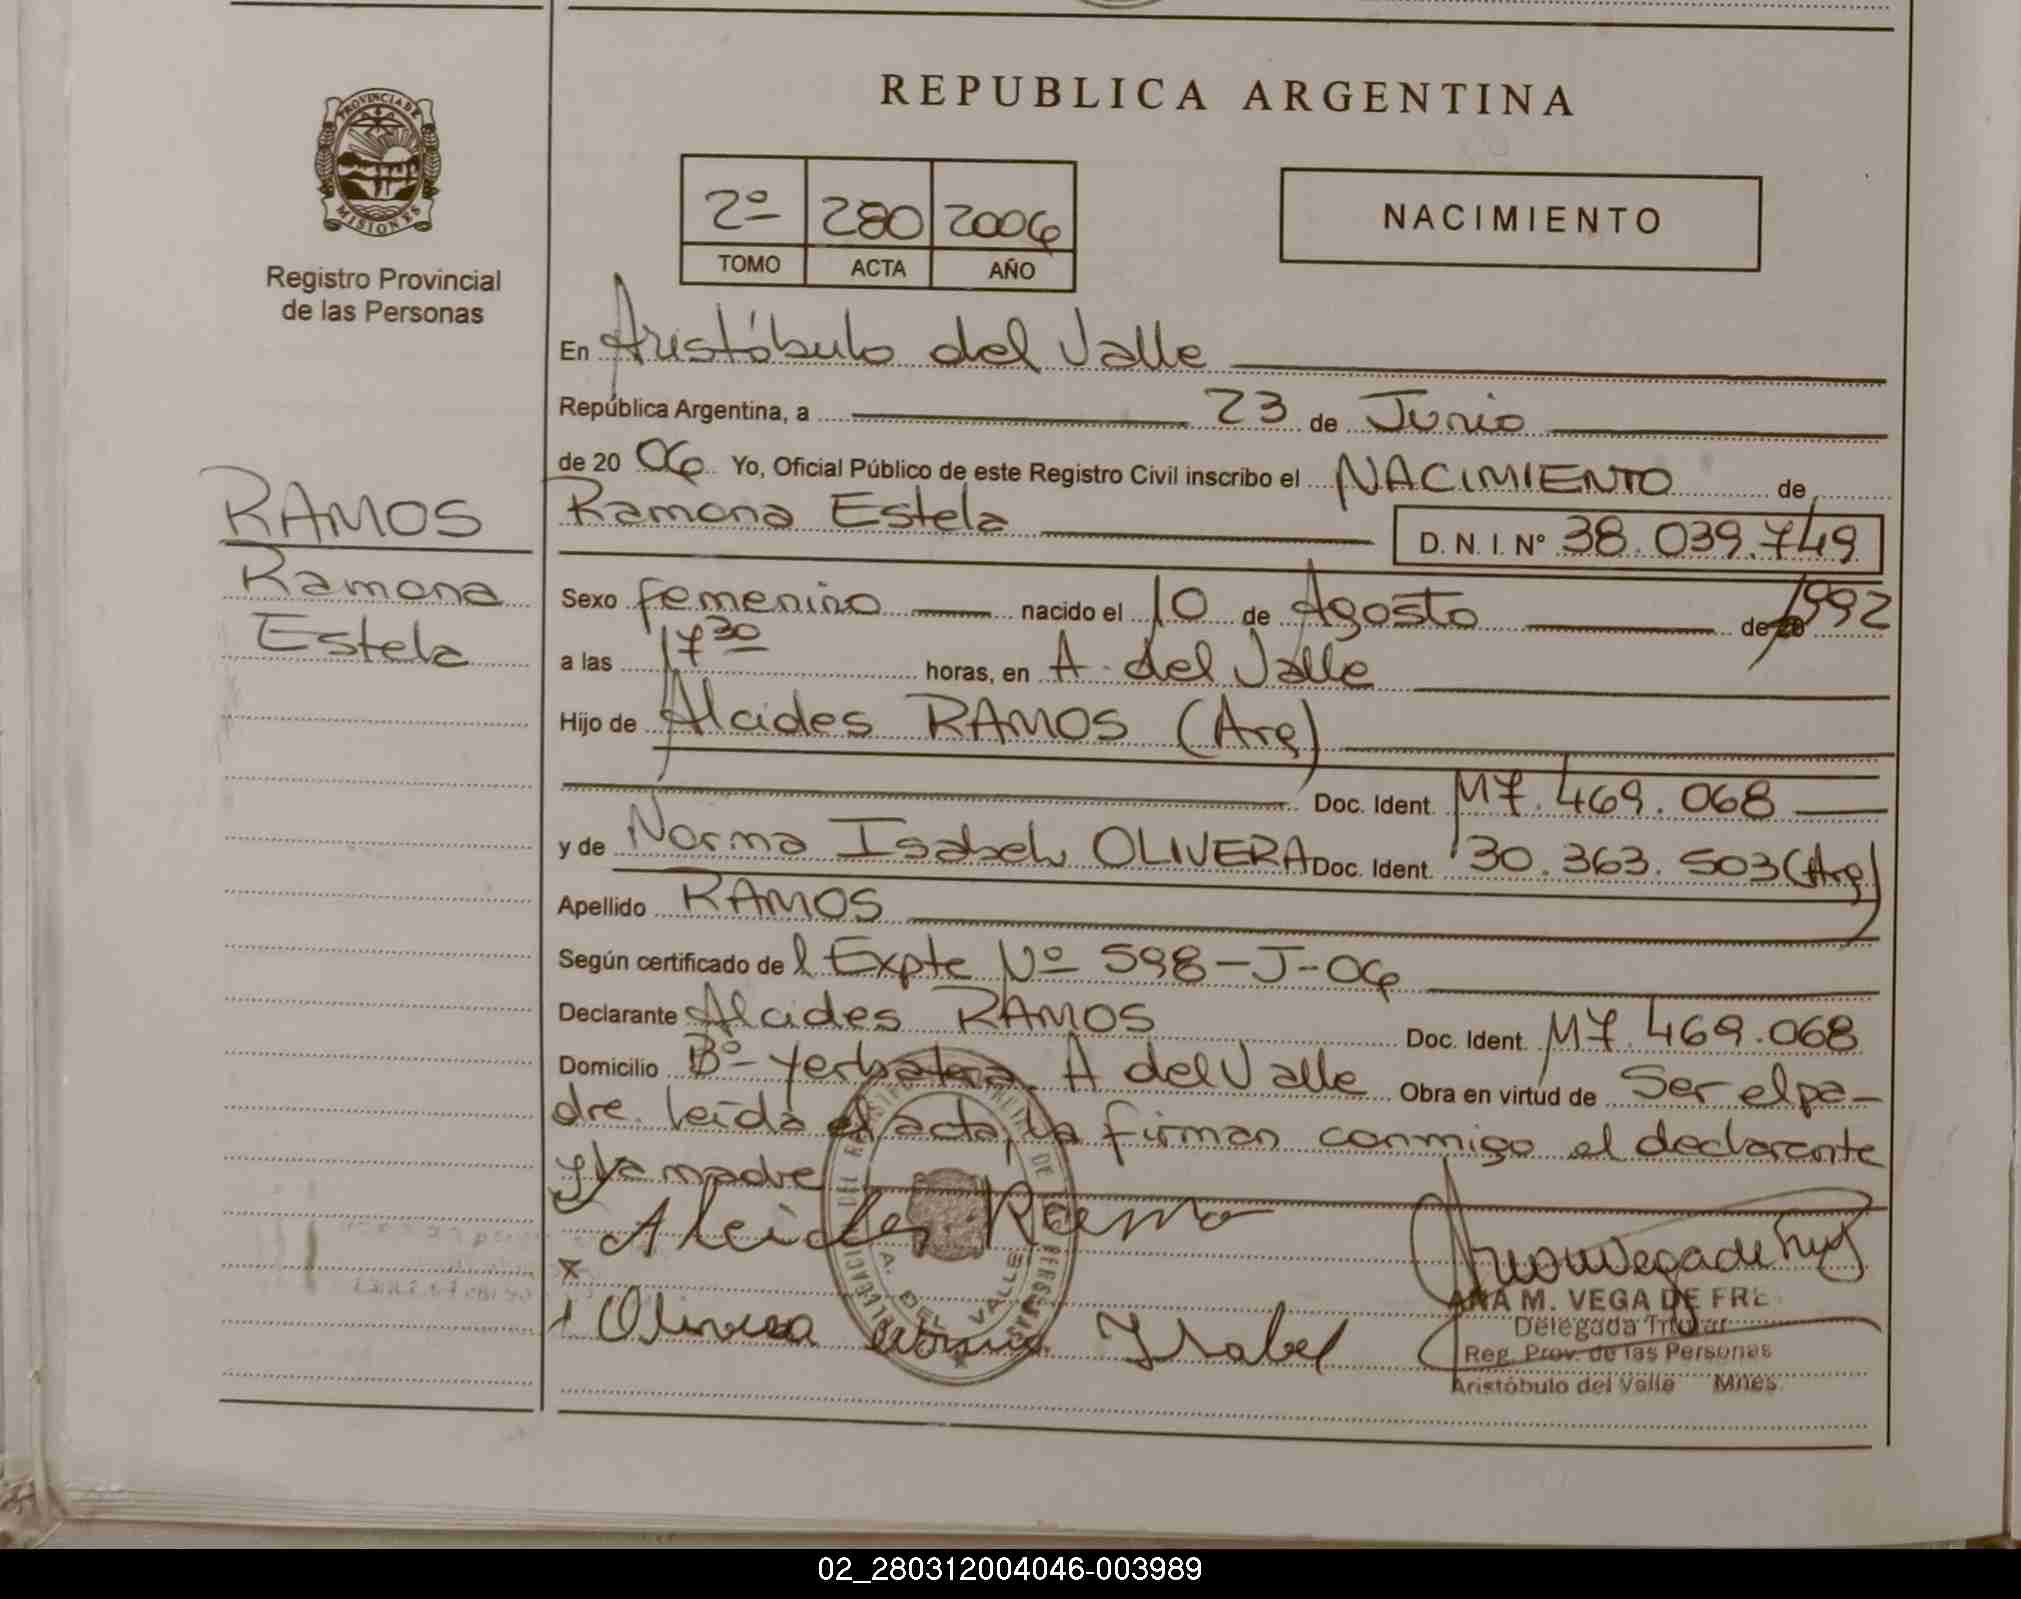 REPUBLICA ARGENTINA
PROVINCIA DE MISIONES
Registro Provincial
de las Personas
2º 280 2006
TOMO ACTA AÑO
NACIMIENTO
En Aristóbulo del Valle
República Argentina, a 23 de Junio
de 20 06 Yo, Oficial Público de este Registro Civil inscribo el NACIMIENTO de
RAMOS
Ramona
Estela
Ramona Estela D. N. I. Nº 38.039.749
Sexo femenino nacido el 10 de Agosto de 1992
a las 17 30 horas, en A. del Valle
Hijo de Alcides RAMOS (Arg)
Doc. Ident. M7.469.068
y de Norma Isabel OLIVERA Doc. Ident. 30.363.503 (Arg)
Apellido RAMOS
Según certificado de l Expte Nº 598-J-06
Declarante Alcides RAMOS Doc. Ident. M7.469.068
Domicilio Bº Yerbatera A del Valle Obra en virtud de Ser el pa-
dre. leída el acta, la firman conmigo el declarante
y la madre
Alcides Ramo
x
Olivera Norma Isabel
A. DEL VALLE
ANA M. VEGA DE FRE
Delegada Titular
Reg. Prov. de las Personas
Aristóbulo del Valle Mnes.
02_280312004046-003989